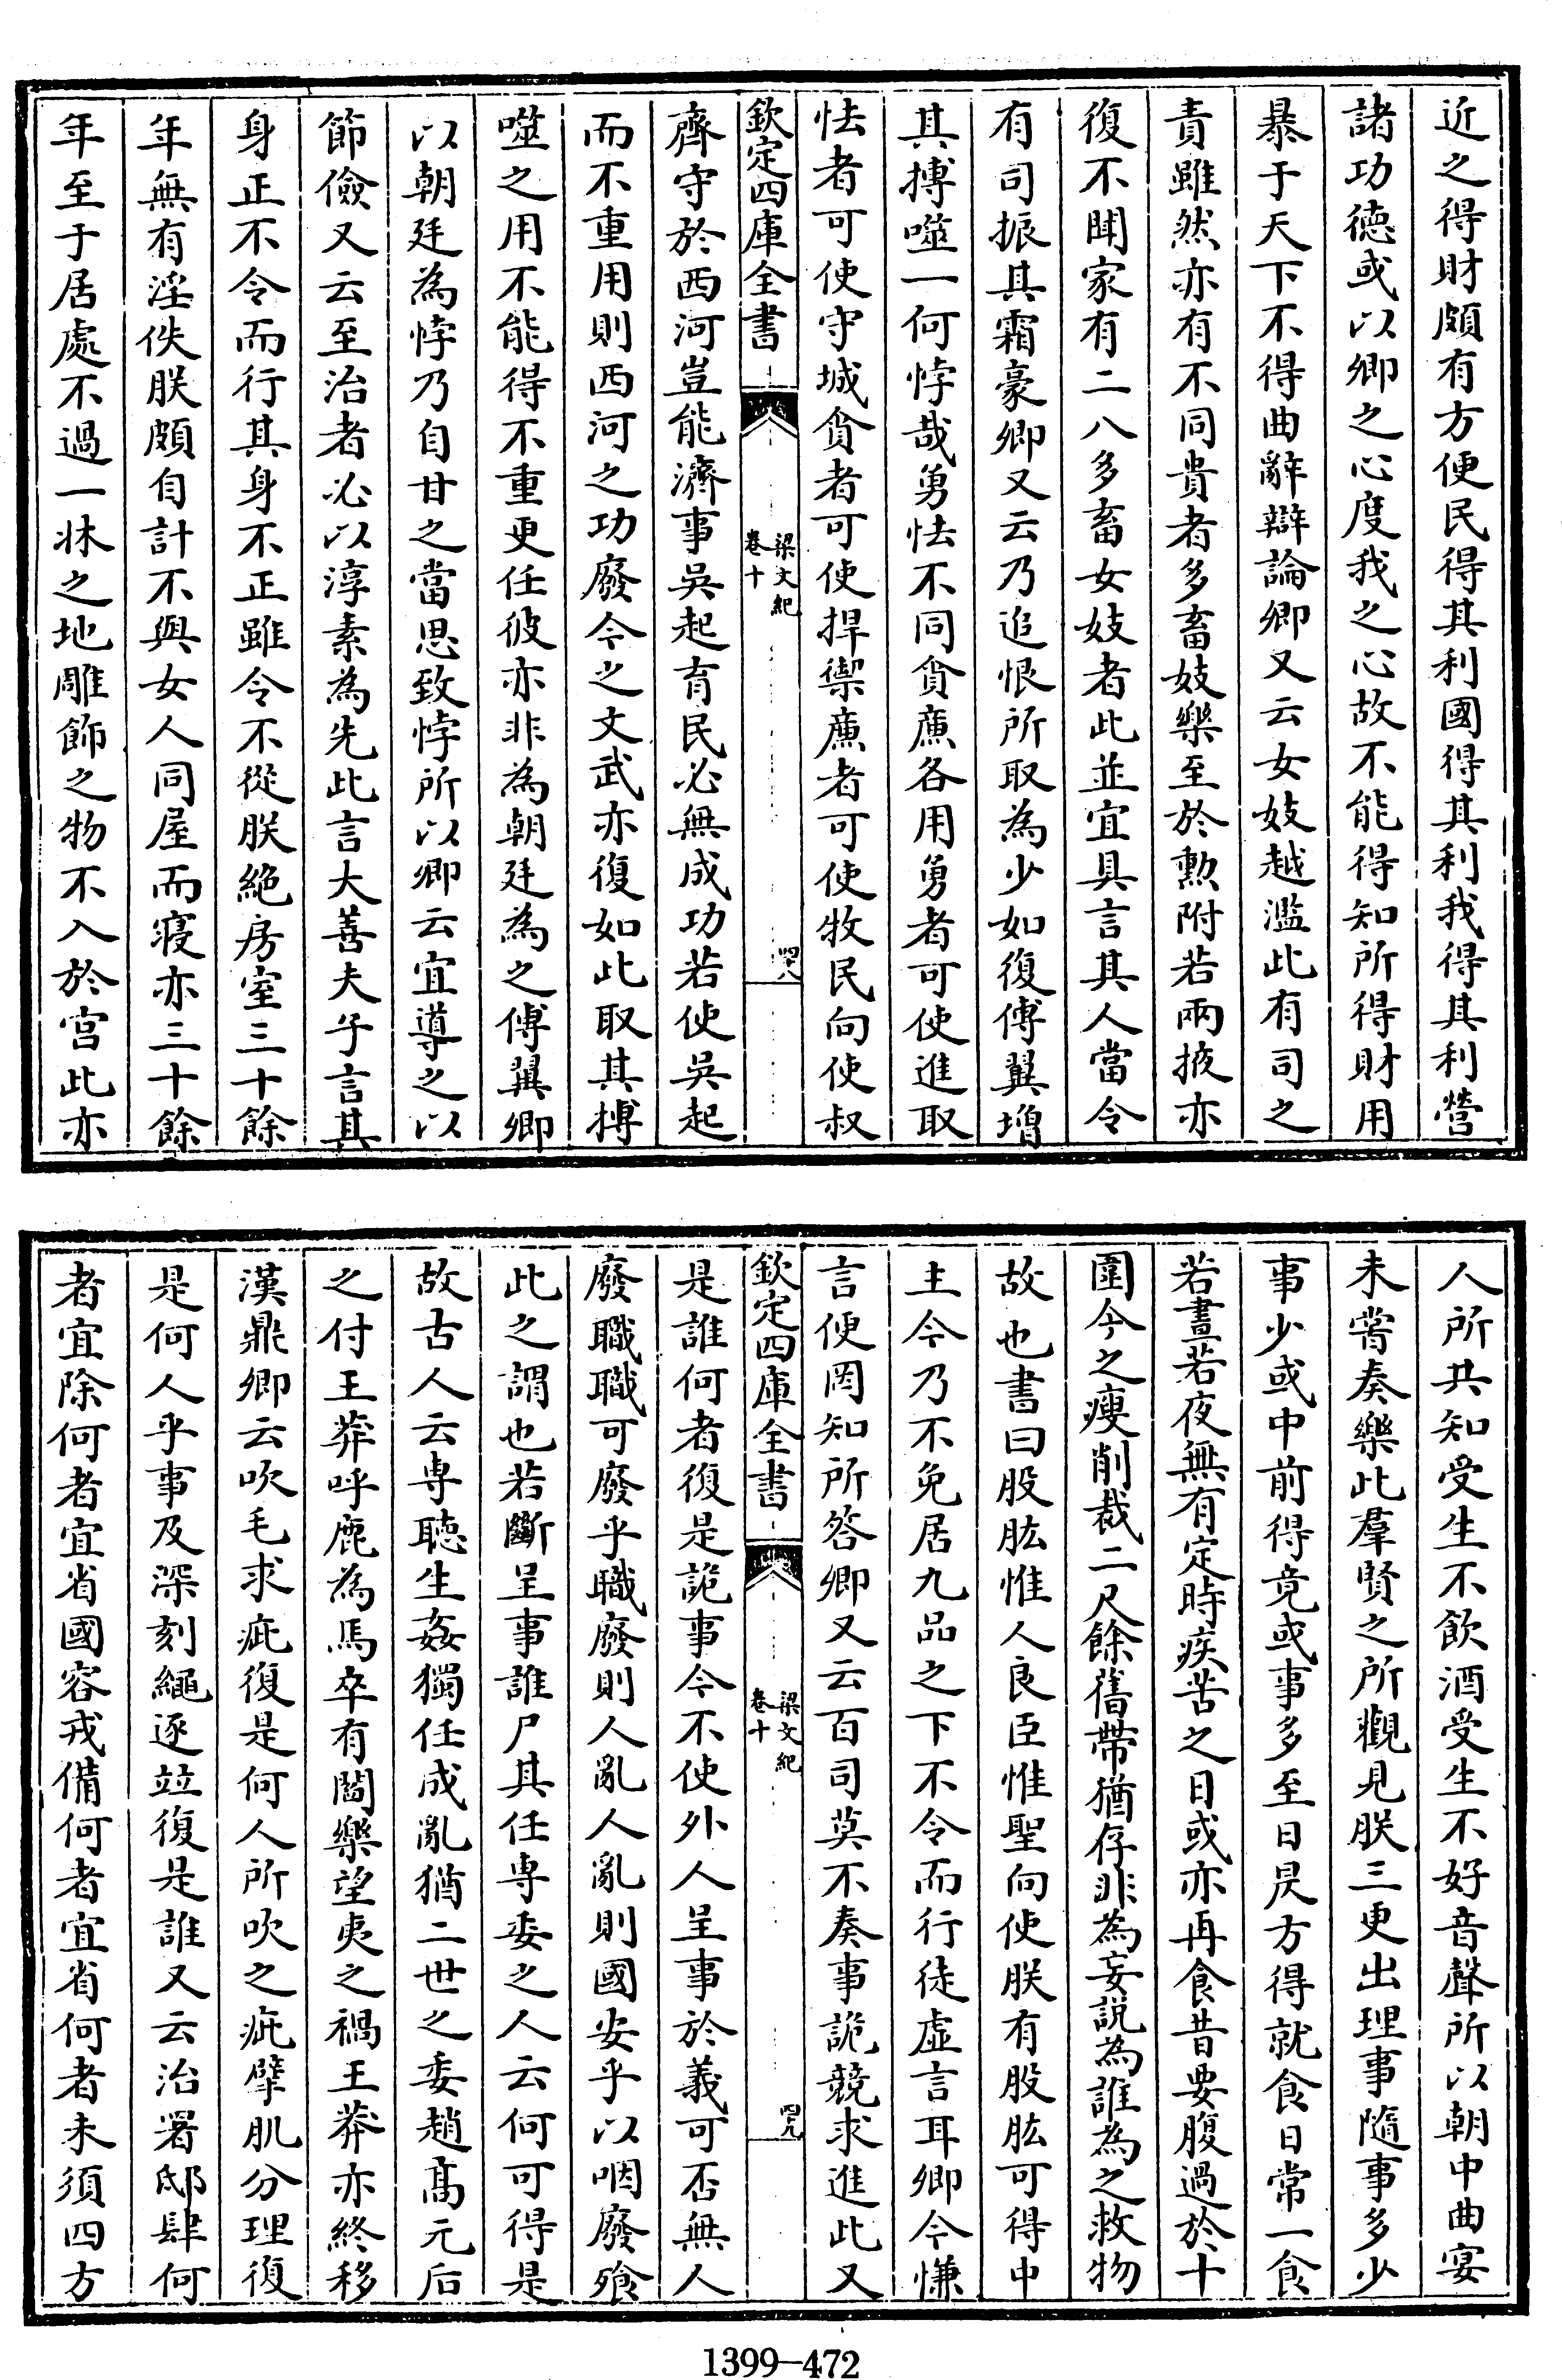 近之得財頗有方便民得其利國得其利我得其利營
諸功德或以卿之心度我之心故不能得知所得財用
暴于天下不得曲辭辯論卿又云女妓越濫此有司之
責雖然亦有不同貴者多畜妓樂至於勲附若兩掖亦
復不聞家有二八多畜女妓者此並宜具言其人當令
有司振其霜豪卿又云乃追恨所取為少如復傅翼增
其搏噬一何悖哉勇怯不同貪廉各用勇者可使進取
怯者可使守城貪者可使捍禦廉者可使牧民向使叔
欽定四庫全書
梁文紀
卷十
四八
齊守於西河豈能濟事吳起育民必無成功若使吳起
而不重用則西河之功廢今之文武亦復如此取其搏
噬之用不能得不重更任彼亦非為朝廷為之傅翼卿
以朝廷為悖乃自甘之當思致悖所以卿云宜導之以
節儉又云至治者必以淳素為先此言大善夫子言其
身正不令而行其身不正雖令不從朕絶房室三十餘
年無有淫佚朕頗自計不與女人同屋而寢亦三十餘
年至于居處不過一牀之地雕飾之物不入於宫此亦
人所共知受生不飲酒受生不好音聲所以朝中曲宴
未嘗奏樂此羣賢之所觀見朕三更出理事隨事多少
事少或中前得竟或事多至日昃方得就食日常一食
若晝若夜無有定時疾苦之日或亦再食昔要腹過於十
圍今之瘦削裁二尺餘舊帶猶存非為妄説為誰為之救物
故也書曰股肱惟人良臣惟聖向使朕有股肱可得中
主今乃不免居九品之下不令而行徒虚言耳卿今慊
言便罔知所答卿又云百司莫不奏事詭競求進此又
欽定四庫全書
梁文紀
卷十
四九
是誰何者復是詭事今不使外人呈事於義可否無人
廢職職可廢乎職廢則人亂人亂則國安乎以咽廢飱
此之謂也若斷呈事誰尸其任専委之人云何可得是
故古人云専聴生姦獨任成亂猶二世之委趙髙元后
之付王莽呼鹿為馬卒有閻樂望夷之禍王莽亦終移
漢鼎卿云吹毛求疵復是何人所吹之疵擘肌分理復
是何人乎事及深刻繩逐竝復是誰又云治署邸肆何
者宜除何者宜省國容戎備何者宜省何者未須四方
1399—472